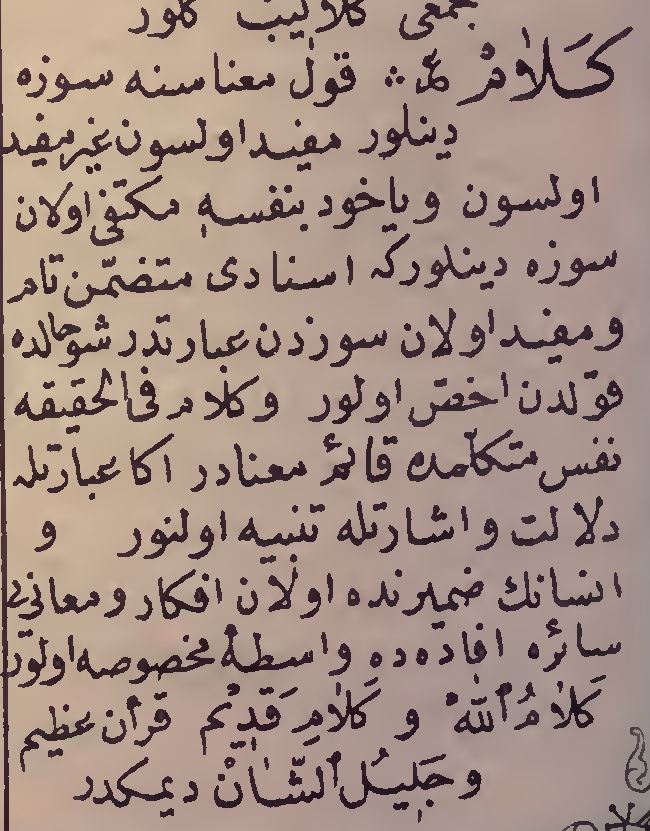 جمعى كلاليب كلور
كَلاٰمْ عم ⁂ قول معناسنه سوزه
دينلور مفيد اولسون غير مفيد
اولسون وياخود بنفسه مكتفى اولان
سوزه دينلوركه اسنادى متضمّن تام
و مفيد اولان سوزدن عبارتدر شو حالده
قولدن اخصّ اولور وكلام فى الحقيقه
نفس متكلّمده قائم معنادر اكا عبارتله
دلالت و اشارتله تنبيه اولنور و
انسانك ضميرنده اولان افكار و معانى‌ء
سائره افاده‌ده واسطهٔ مخصوصه اولور
كَلاٰمُ ٱللّٰه و كَلاٰمِ قَدِيْم قرآن عظيم
و جَلِيلُ ٱلشَّاٰنْ ديمكدر